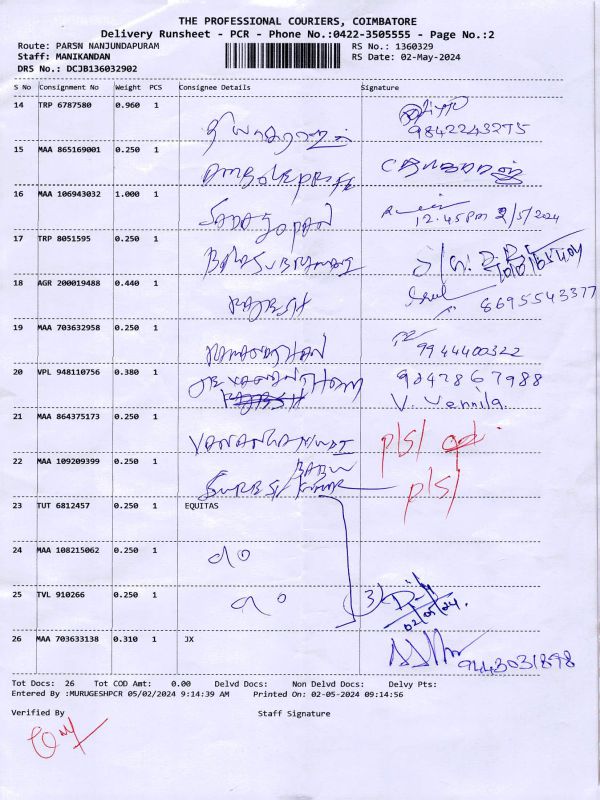 THE PROFESSIONAL COURIERS, COIMBATORE
Delivery Runsheet - PCR - Phone No.:0422-3505555 - Page No.:2
Route: PARSN NANJUNDAPURAM
RS No.: 1360329
Staff: MANIKANDAN
RS Date: 02-May-2024
DRS No.: DCJB136032902
S No Consignment No Weight PCS Consignee Details Signature
14 TRP 6787580 0.960 1
9842243275
15 MAA 865169001 0.250 1
16 MAA 106943032 1.000 1
SADAGOPAN 12.45pm 2/5/2024
17 TRP 8051595 0.250 1
BALASUBRAMANI
18 AGR 200019488 0.440 1
RAJESH 8695543377
19 MAA 703632958 0.250 1
9944400322
20 VPL 948110756 0.380 1 9842867988
V. Vennila.
21 MAA 864375173 0.250 1
p/s/
22 MAA 109209399 0.250 1
BABU
p/s/
23 TUT 6812457 0.250 1 EQUITAS
24 MAA 108215062 0.250 1
do
25 TVL 910266 0.250 1
do 3
02/05/24.
26 MAA 703633138 0.310 1 JX
9443031898
Tot Docs: 26 Tot COD Amt: 0.00 Delvd Docs: Non Delvd Docs: Delvy Pts:
Entered By :MURUGESHPCR 05/02/2024 9:14:39 AM Printed On: 02-05-2024 09:14:56
Verified By Staff Signature